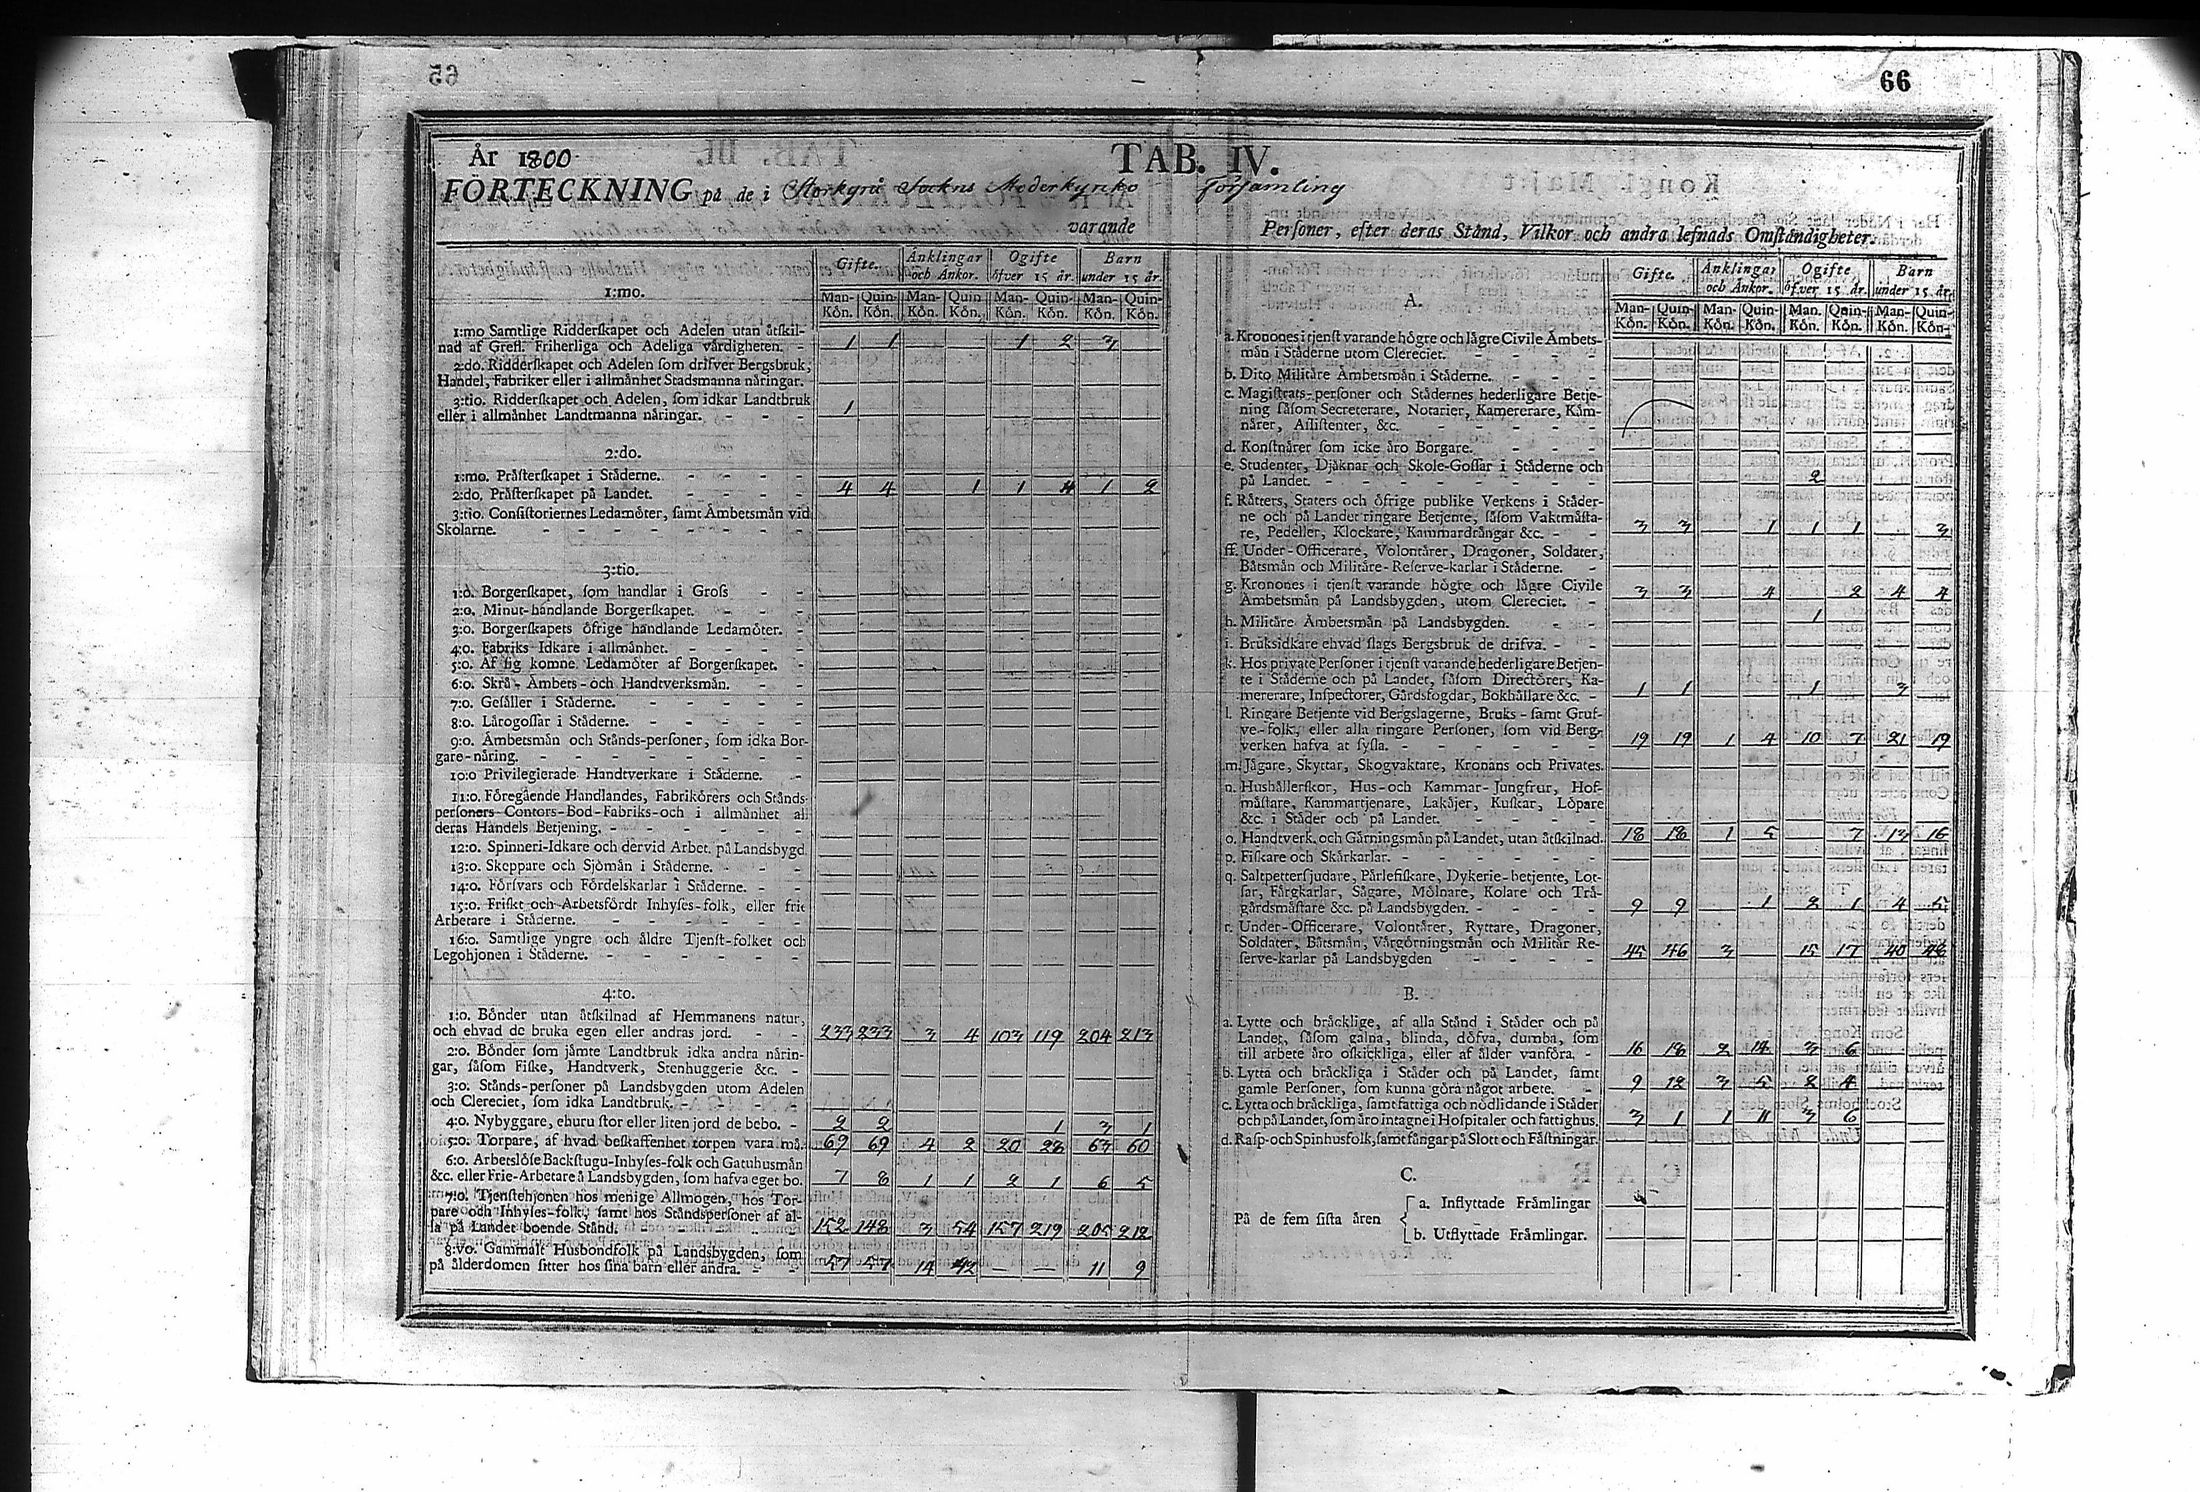 65
66
År 1800
TAB. IV.
FÖRTECKNING på de i Storkyrå Sockns Moderkyrko Församling
varande Personer, efter deras Stånd, Vilkor och andra lefnads Omständigheter.
1:mo.
Gifte. Änklingar och Änkor. Ogifte öfver 15 år. Barn under 15 år.
Man-Kön. Quin-Kön. Man-Kön. Quin-Kön. Man-Kön. Quin-Kön. Man-Kön. Quin-Kön.
1:mo Samtlige Ridderskapet och Adelen utan åtskil-
nad af Grefl. Friherliga och Adeliga värdigheten. - 1 1 1 2 3
2:do. Ridderskapet och Adelen som drifver Bergsbruk,
Handel, Fabriker eller i allmänhet Stadsmanna näringar.
3:tio. Ridderskapet och Adelen, som idkar Landtbruk
eller i allmänhet Landtmanna näringar. - - - 1
2:do.
1:mo. Prästerskapet i Städerne. - - - -
2:do. Prästerskapet på Landet. - - - - 4 4 1 1 4 1 2
3:tio. Consistoriernes Ledamöter, samt Ämbetsmän vid
Skolarne. - - - - - - - -
3:tio.
1:o. Borgerskapet, som handlar i Gross - -
2:o. Minut-handlande Borgerskapet. - - -
3:o. Borgerskapets öfrige handlande Ledamöter. -
4:o. Fabriks-Idkare i allmänhet. - - - -
5:o. Af sig komne Ledamöter af Borgerskapet. -
6:o. Skrå-Ämbets-och Handtverksmän. - -
7:o. Gesäller i Städerne. - - - - -
8:o. Lärogossar i Städerne. - - - - -
9:o. Ämbetsmän och Stånds-personer, som idka Bor-
gare-näring. - - - - - - -
10:o Privilegierade Handtverkare i Städerne. -
11:o. Föregående Handlandes, Fabrikörers och Stånds-
personers Contors-Bod-Fabriks-och i allmänhet all
deras Handels Betjening. - - - - - -
12:o. Spinneri-Idkare och dervid Arbet. på Landsbygd
13:o. Skeppare och Sjömän i Städerne. - - -
14:o. Försvars och Fördelskarlar i Städerne. - -
15:o. Friskt och Arbetsfördt Inhyses-folk, eller frie
Arbetare i Städerne. - - - - - -
16:o. Samtlige yngre och äldre Tjenst-folket och
Legohjonen i Städerne. - - - - - -
4:to.
1:o. Bönder utan åtskilnad af Hemmanens natur,
och ehvad de bruka egen eller andras jord. - - 233 233 3 4 103 119 204 213
2:o. Bönder som jämte Landtbruk idka andra närin-
gar, såsom Fiske, Handtverk, Stenhuggerie &c. -
3:o. Stånds-personer på Landsbygden utom Adelen
och Clereciet, som idka Landtbruk. - - - -
4:o. Nybyggare, ehuru stor eller liten jord de bebo. - 2 2 1 3 1
5:o. Torpare, af hvad beskaffenhet torpen vara må. 69 69 4 2 20 28 63 60
6:o. Arbetslöse Backstugu-Inhyses-folk och Gatuhusmän
&c. eller Frie-Arbetare å Landsbygden, som hafva eget bo. 7 8 1 1 2 1 6 5
7:o. Tjenstehjonen hos menige Allmogen, hos Tor-
pare och Inhyses-folk, samt hos Ståndspersoner af al-
la på Landet boende Stånd. 152 148 3 54 157 219 205 212
8:vo. Gammalt Husbondfolk på Landsbygden, som
på ålderdomen sitter hos sina barn eller andra. - - 57 57 14 42 — — 11 9
A.
Gifte. Änklingar och Änkor. Ogifte öfver 15 år. Barn under 15 år.
Man-Kön. Quin-Kön. Man-Kön. Quin-Kön. Man. Kön. Quin-Kön. Man-Kön. Quin-Kön.
a. Kronones i tjenst varande högre och lägre Civile Ämbets-
män i Städerne utom Clereciet. - - - -
b. Dito Militäre Ämbetsmän i Städerne. - - -
c. Magistrats-personer och Städernes hederligare Betje-
ning såsom Secreterare, Notarier, Kamererare, Käm-
närer, Assistenter, &c. - - - - -
d. Konstnärer som icke äro Borgare. - - - -
e. Studenter, Djäknar och Skole-Gossar i Städerne och
på Landet. - - - - - - - 2
f. Rättets, Staters och öfrige publike Verkens i Städer-
ne och på Landet ringare Betjente, såsom Vaktmästa-
re, Pedeller, Klockare, Kammardrängar &c. - - 3 3 1 1 1 3
ff. Under-Officerare, Volontärer, Dragoner, Soldater,
Båtsmän och Militäre-Reserve-karlar i Städerne. -
g. Kronones i tjenst varande högre och lägre Civile
Ämbetsmän på Landsbygden, utom Clereciet. - 3 3 4 2 4 4
h. Militäre Ämbetsmän på Landsbygden. - - 1
i. Bruksidkare ehvad slags Bergsbruk de drifva. - -
k. Hos private Personer i tjenst varande hederligare Betjen-
te i Städerne och på Landet, såsom Directörer, Ka-
mererare, Inspectorer, Gårdsfogdar, Bokhållare &c. - 1 1 1 3
l. Ringare Betjente vid Bergslagerne, Bruks-samt Gruf-
ve-folk, eller alla ringare Personer, som vid Berg-
verken hafva at syssla. - - - - - 19 19 1 4 10 7 21 19
m. Jägare, Skyttar, Skogvaktare, Kronans och Privates.
n. Hushållerskor, Hus-och Kammar-Jungfrur, Hof-
mästare, Kammartjenare, Lakäjer, Kuskar, Löpare
&c. i Städer och på Landet. - - - -
o. Handtverk. och Gärningsmän på Landet, utan åtskilnad. 18 18 1 5 7 13 16
p. Fiskare och Skärkarlar. - - - - - -
q. Saltpettersjudare, Pärlefiskare, Dykerie-betjente, Lot-
sar, Färgkarlar, Sågare, Mölnare, Kolare och Trä-
gårdsmästare &c. på Landsbygden. - - - - 9 9 1 2 1 4 5
r. Under-Officerare, Volontärer, Ryttare, Dragoner,
Soldater, Båtsmän, Vårgörningsmän och Militär Re-
serve-karlar på Landsbygden - - - - 45 46 3 15 17 40 48
B.
a. Lytte och bräcklige, af alla Stånd i Städer och på
Landet, såsom galna, blinda, döfva, dumba, som
till arbete äro oskickliga, eller af ålder vanföra. - 16 18 2 14 3 6
b. Lytta och bräckliga i Städer och på Landet, samt
gamle Personer, som kunna göra något arbete. - 9 12 3 5 2 4
c. Lytta och bräckliga, samt fattiga och nödlidande i Städer
och på Landet, som äro intagne i Hospitaler och fattighus. 3 1 1 11 3 6
d. Rasp-och Spinhusfolk, samt fångar på Slott och Fästningar.
C.
På de fem sista åren
a. Inflyttade Främlingar
b. Utflyttade Främlingar.